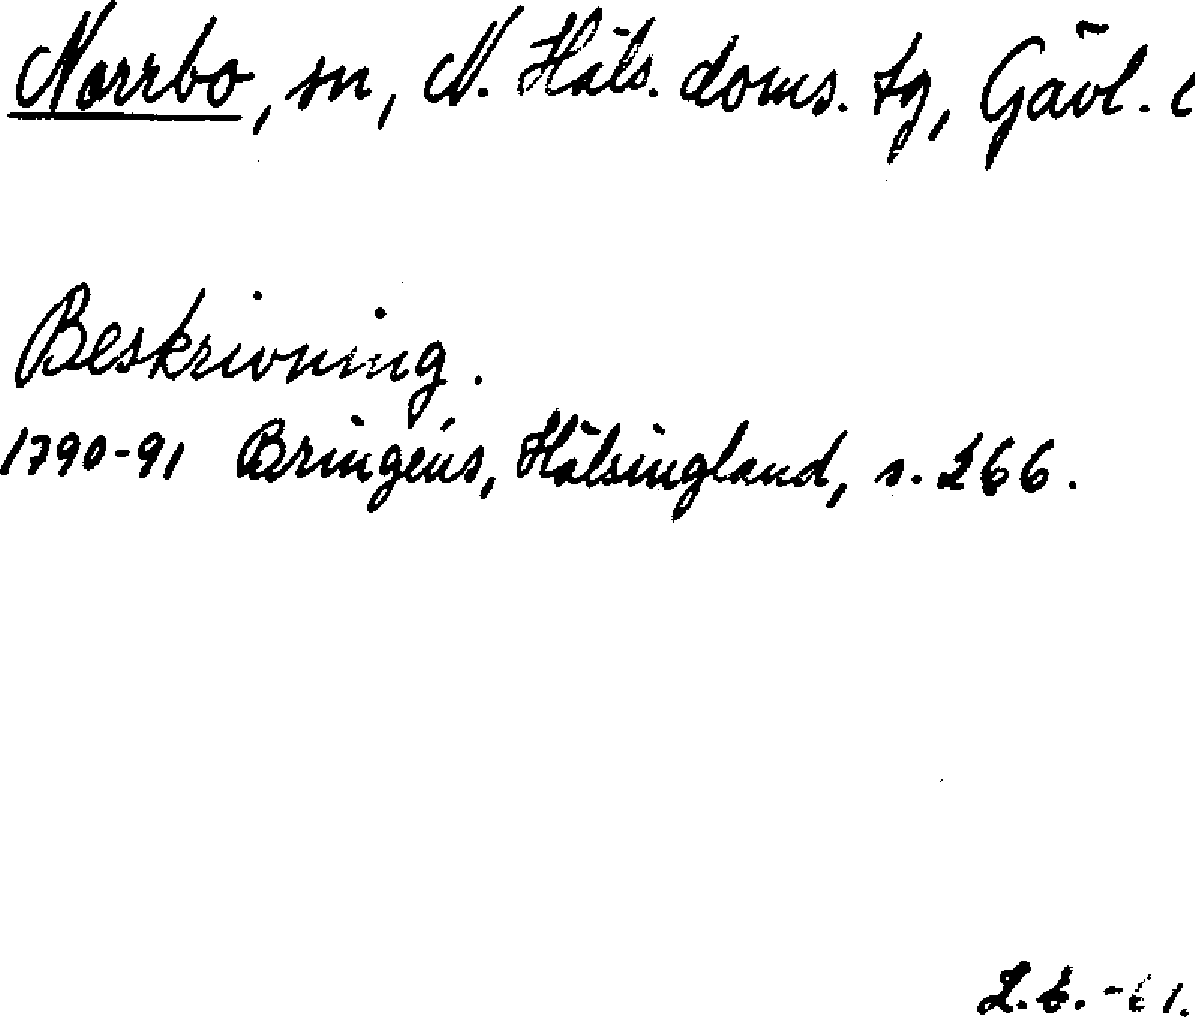 Norrbo, sn, N. Häls. doms. tg, Gävl. l
Beskrivning.
1790-91 Bringéus, Hälsingland, s. 266.